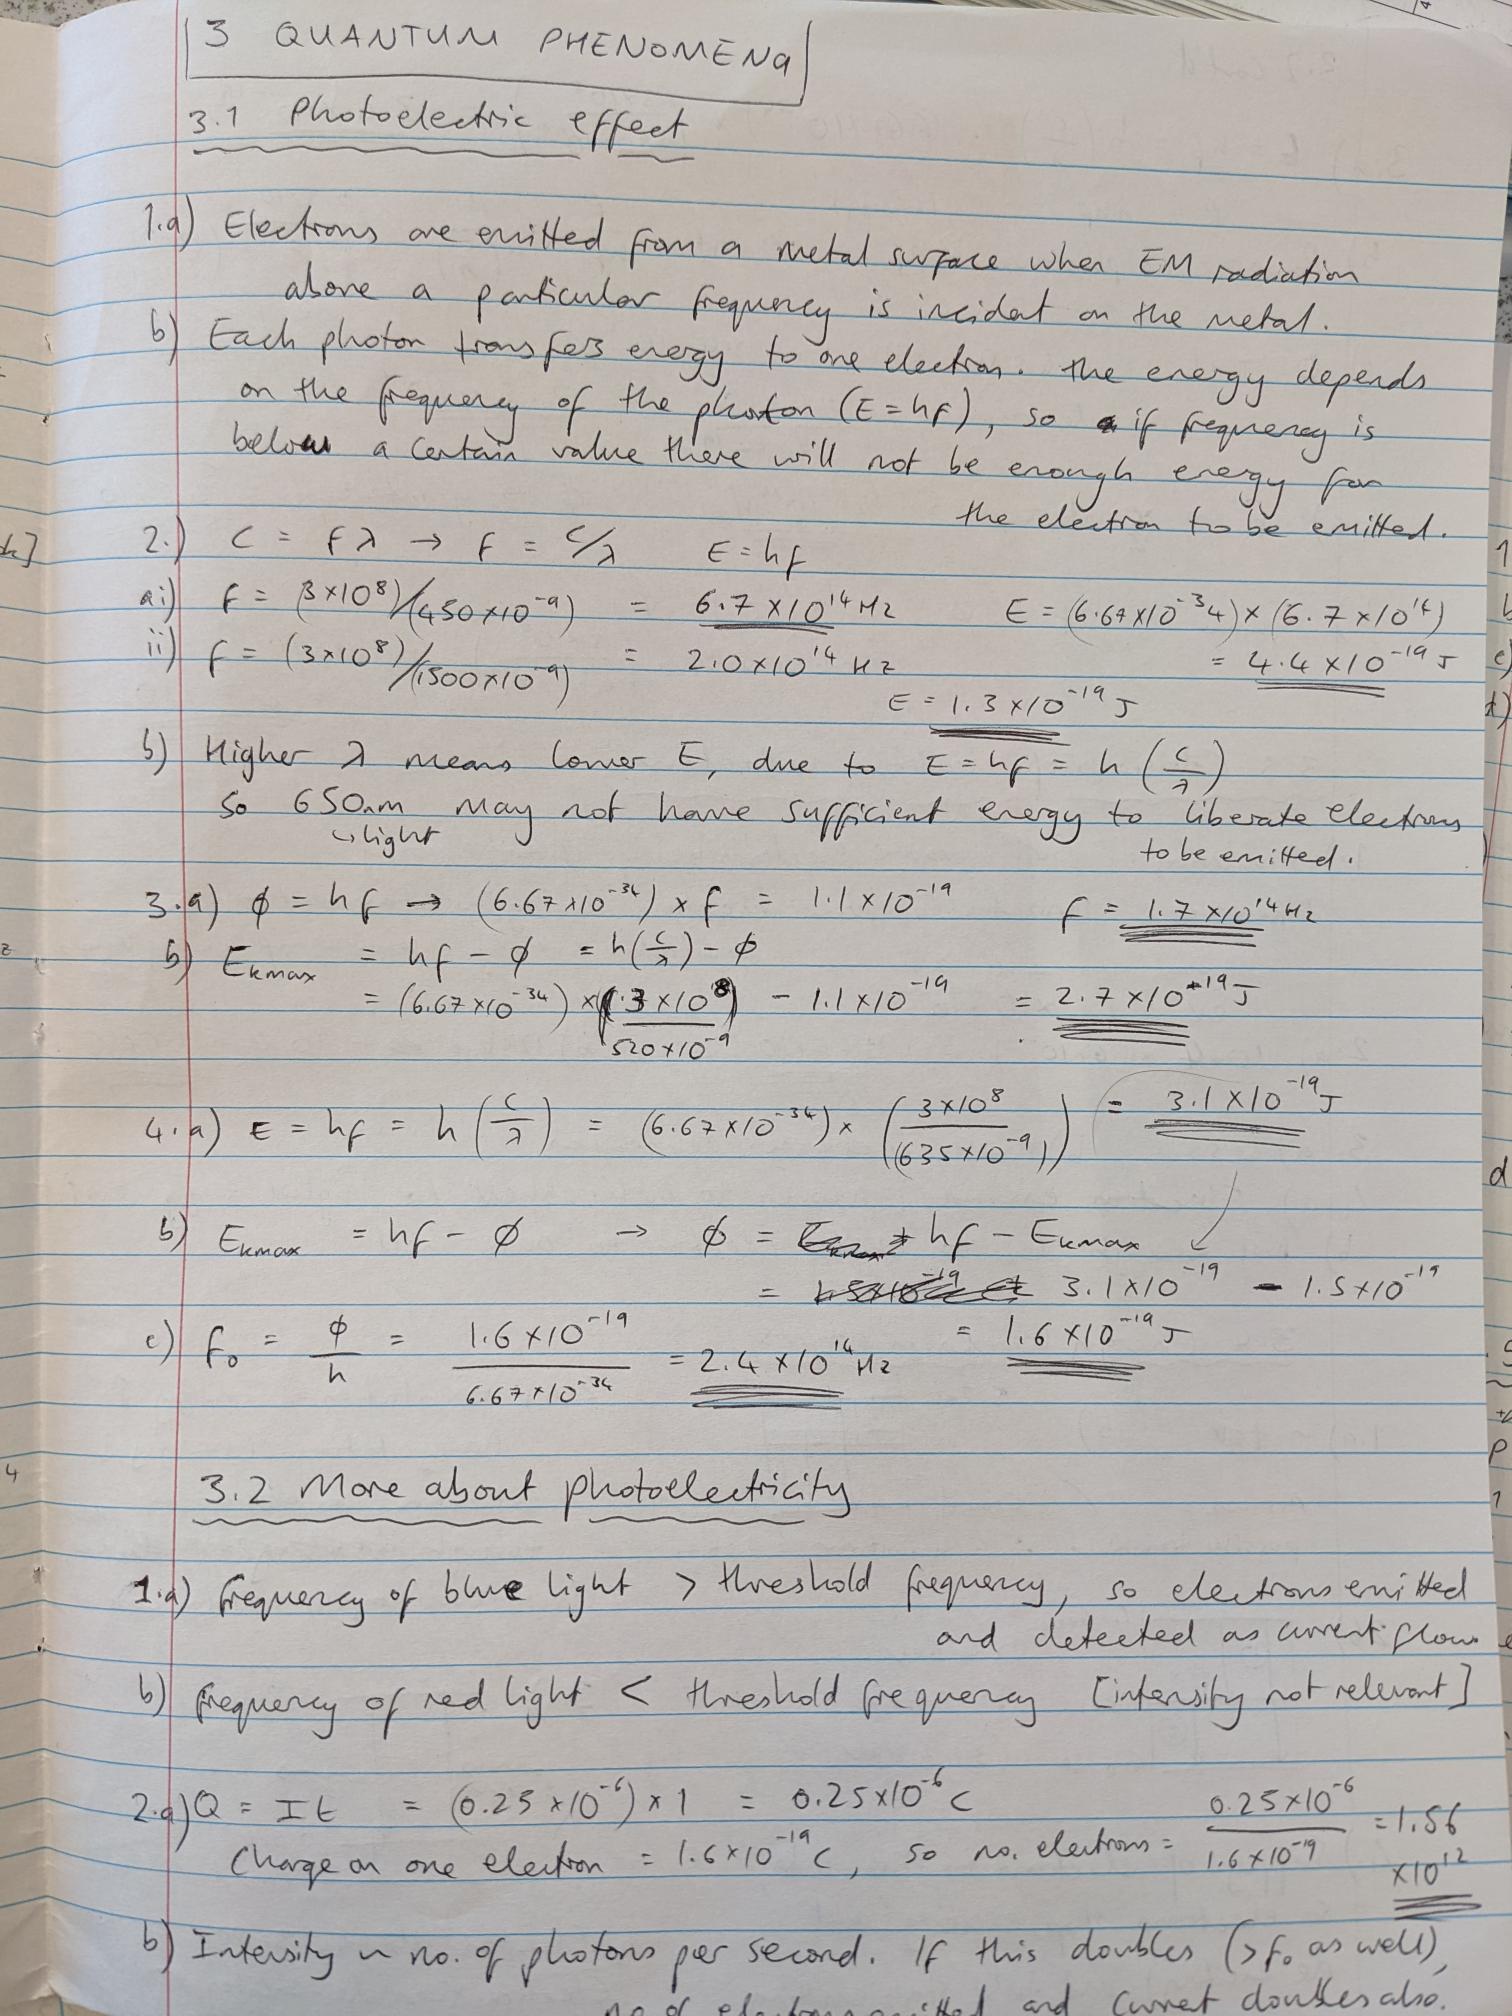 3 QUANTUM PHENOMENA
3.1 Photoelectric effect
1.a) Electrons are emitted from a metal surface when EM radiation
above a particular frequency is incident on the metal.
b) Each photon transfers energy to one electron. The energy depends
on the frequency of the photon (E = hf), so if frequency is
below a certain value there will not be enough energy for
the electron to be emitted.
2.) c = fλ → f = c/λ E = hf
ai) f = (3×10⁸)/(450×10⁻⁹) = 6.7×10¹⁴Hz E = (6.67×10⁻³4)×(6.7×10¹⁴)
= 4.4×10⁻¹⁹J
ii) f = (3×10⁸)/(1500×10⁻⁹) = 2.0×10¹⁴Hz
E = 1.3×10⁻¹⁹J
b) Higher λ means lower E, due to E = hf = h(c/λ)
So 650nm may not have sufficient energy to liberate electrons
↳light to be emitted.
3.a) ϕ = hf → (6.67×10⁻³⁴)×f = 1.1×10⁻¹⁹ f = 1.7×10¹⁴Hz
b) Ekmax = hf - ϕ = h(c/λ) - ϕ
= (6.67×10⁻³⁴)×(3×10⁸/520×10⁻⁹) - 1.1×10⁻¹⁹ = 2.7×10⁻¹⁹J
4.a) E = hf = h(c/λ) = (6.67×10⁻³⁴)×(3×10⁸/(635×10⁻⁹)) = 3.1×10⁻¹⁹J
b) Ekmax = hf - ϕ → ϕ = hf - Ekmax
= 3.1×10⁻¹⁹ - 1.5×10⁻¹⁹
= 1.6×10⁻¹⁹J
c) f₀ = ϕ/h = 1.6×10⁻¹⁹/6.67×10⁻³⁴ = 2.4×10¹⁴Hz
3.2 More about photoelectricity
1.a) frequency of blue light > threshold frequency, so electrons emitted
and detected as current flow
b) frequency of red light < threshold frequency [intensity not relevant]
2.a) Q = It = (0.25×10⁻⁶)×1 = 0.25×10⁻⁶C 0.25×10⁻⁶/1.6×10⁻¹⁹ = 1.56
Charge on one electron = 1.6×10⁻¹⁹C, so no. electrons = ×10¹²
b) Intensity ~ no. of photons per second. If this doubles (>f₀ as well),
no of electrons emitted and current doubles also.